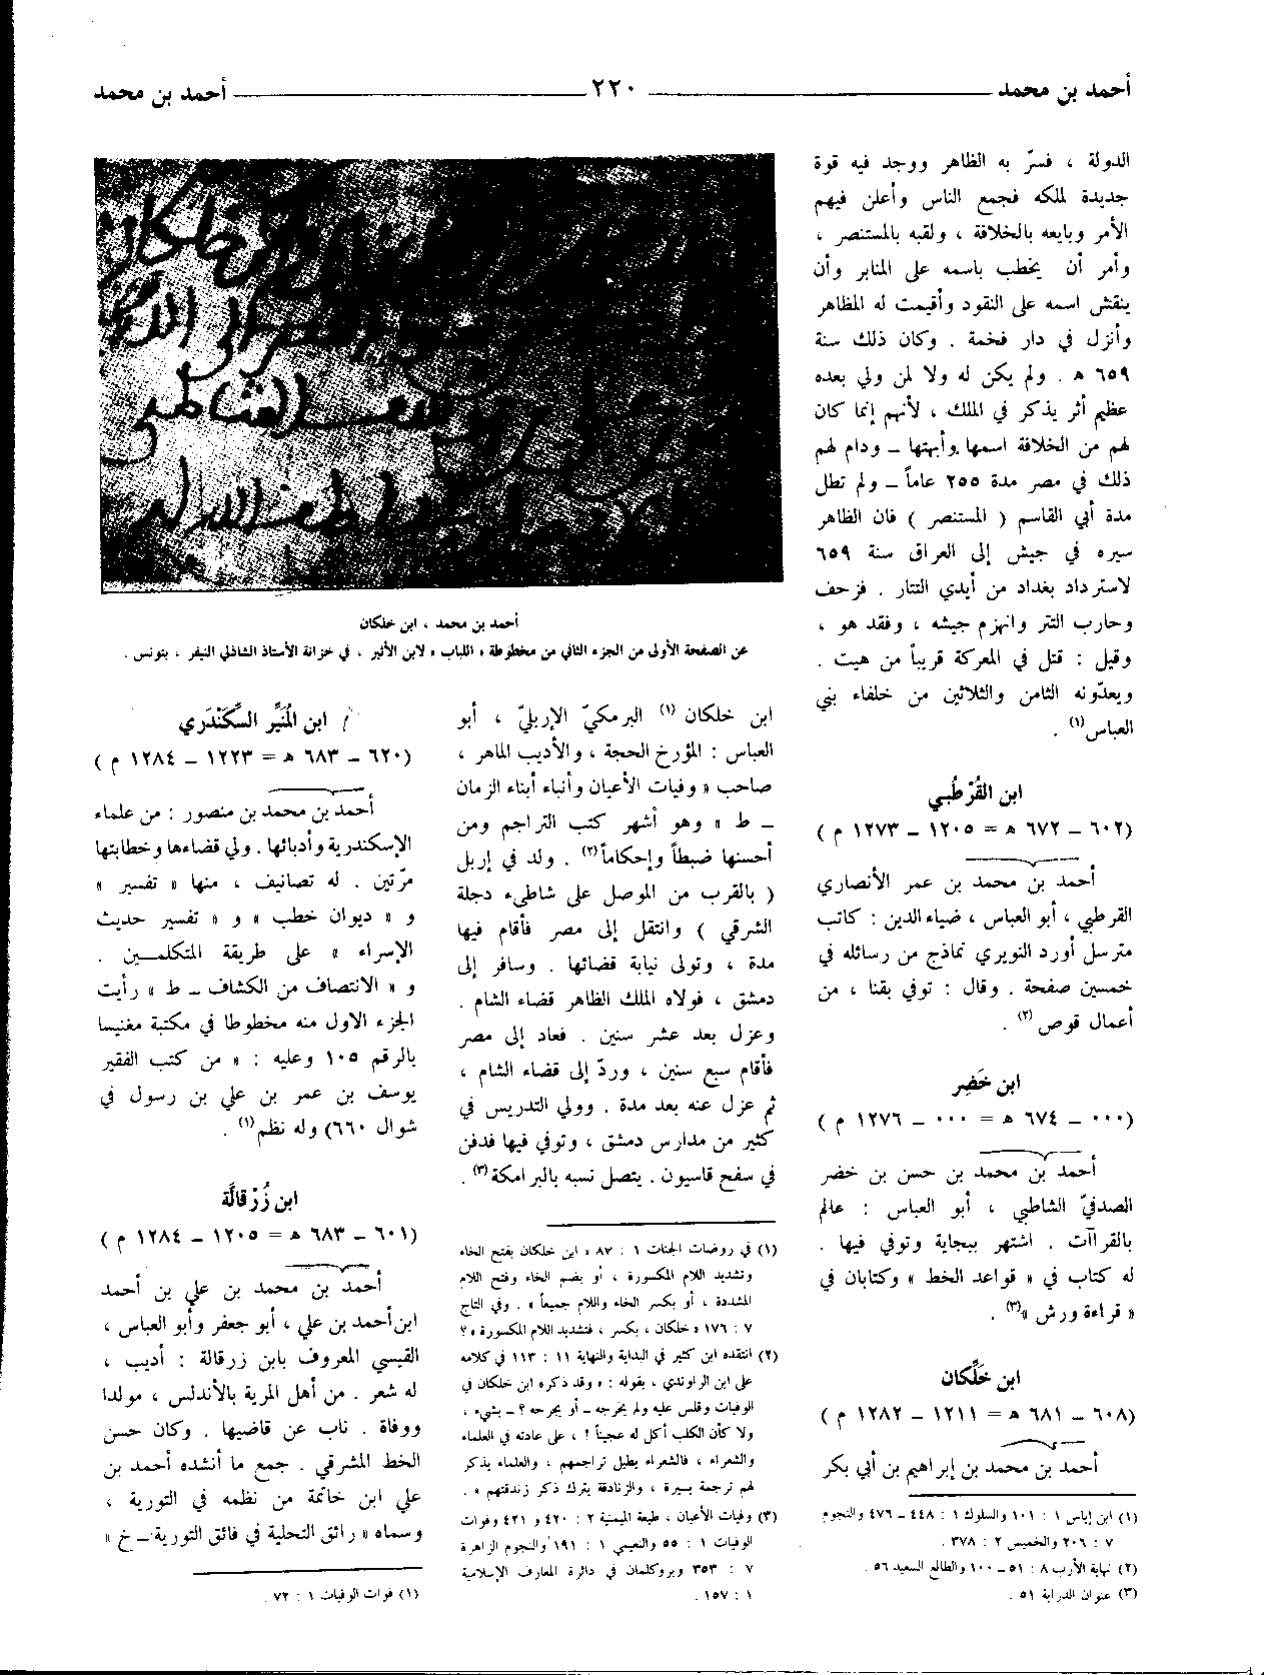 أحمد بن محمد
٢٢٠
أحمد بن محمد
الدولة ، فسرّ به الظاهر ووجد فيه قوة
جديدة لملكه فجمع الناس وأعلن فيهم
الأمر وبايعه بالخلافة ، ولقبه بالمستنصر ،
وأمر أن يخطب باسمه على المنابر وأن
ينقش اسمه على النقود وأقيمت له المظاهر
وأنزل في دار فخمة . وكان ذلك سنة
٦٥٩ ه . ولم يكن له ولا لمن ولي بعده
عظيم أثر يذكر في الملك ، لأنهم إنما كان
لهم من الخلافة اسمها وأبهتها ـ ودام لهم
ذلك في مصر مدة ٢٥٥ عاماً ـ ولم تطل
مدة أبي القاسم ( المستنصر ) فان الظاهر
سيره في جيش إلى العراق سنة ٦٥٩
لاسترداد بغداد من أيدي التتار . فزحف
وحارب التتر وانهزم جيشه ، وفقد هو ،
وقيل : قتل في المعركة قريباً من هيت .
ويعدّونه الثامن والثلاثين من خلفاء بني
العباس (١) .
ابن القُرْطُبي
(٦٠٢ ـ ٦٧٢ ه = ١٢٠٥ ـ ١٢٧٣ م )
أحمد بن محمد بن عمر الأنصاري
القرطبي ، أبو العباس ، ضياء الدين : كاتب
مترسل أورد النويري نماذج من رسائله في
خمسين صفحة . وقال : توفي بقنا ، من
أعمال قوص (٢) .
ابن خَضِر
(٠٠٠ ـ ٦٧٤ ه = ٠٠٠ ـ ١٢٧٦ م )
أحمد بن محمد بن حسن بن خضر
الصدفيّ الشاطبي ، أبو العباس : عالم
بالقراآت . اشتهر ببجاية وتوفي فيها .
له كتاب في « قواعد الخط » وكتابان في
« قراءة ورش » (٣) .
ابن خَلِّكان
(٦٠٨ ـ ٦٨١ ه = ١٢١١ ـ ١٢٨٢ م )
أحمد بن محمد بن إبراهيم بن أبي بكر
(١) ابن إياس ١ : ١٠١ والسلوك ١ : ٤٤٨ ـ ٤٧٦ والنجوم
٧ : ٢٠٦ والخميس ٢ : ٣٧٨ .
(٢) نهاية الأرب ٨ : ٥١ ـ ١٠٠ والطالع السعيد ٥٦ .
(٣) عنوان الدراية ٥١ .
أحمد بن محمد ، ابن خلكان
عن الصفحة الأولى من الجزء الثاني من مخطوطة « اللباب » لابن الأثير ، في خزانة الأستاذ الشاذلي النيفر ، بتونس .
ابن خلكان (١) البرمكيّ الإربليّ ، أبو
العباس : المؤرخ الحجة ، والأديب الماهر ،
صاحب « وفيات الأعيان وأنباء أبناء الزمان
ـ ط » وهو أشهر كتب التراجم ومن
أحسنها ضبطاً وإحكاماً (٢) . ولد في إربل
( بالقرب من الموصل على شاطىء دجلة
الشرقي ) وانتقل إلى مصر فأقام فيها
مدة ، وتولى نيابة قضائها . وسافر إلى
دمشق ، فولاه الملك الظاهر قضاء الشام .
وعزل بعد عشر سنين . فعاد إلى مصر
فأقام سبع سنين ، وردّ إلى قضاء الشام ،
ثم عزل عنه بعد مدة . وولي التدريس في
كثير من مدارس دمشق ، وتوفي فيها فدفن
في سفح قاسيون . يتصل نسبه بالبرامكة (٣) .
(١) في روضات الجنات ١ : ٨٧ « ابن خلكان بفتح الخاء
وتشديد اللام المكسورة ، أو بضم الخاء وفتح اللام
المشددة ، أو بكسر الخاء واللام جميعاً » . وفي التاج
٧ : ١٧٦ « خلكان ، بكسر ، فتشديد اللام المكسورة » ؟
(٢) انتقده ابن كثير في البداية والنهاية ١١ : ١١٣ في كلامه
على ابن الراوندي ، بقوله : « وقد ذكره ابن خلكان في
الوفيات وقلس عليه ولم يخرجه ـ أو يجرحه ؟ ـ بشيء ،
ولا كأن الكلب أكل له عجيناً ! ، على عادته في العلماء
والشعراء ، فالشعراء يطيل تراجمهم ، والعلماء يذكر
لهم ترجمة يسيرة ، والزنادقة يترك ذكر زندقتهم » .
(٣) وفيات الأعيان ، طبعة الميمنية ٢ : ٤٢٠ و ٤٢١ وفوات
الوفيات ١ : ٥٥ والنعيمي ١ : ١٩١ والنجوم الزاهرة
٧ : ٣٥٣ وبروكلمان في دائرة المعارف الإسلامية
١ : ١٥٧ .
ابن المُنَيِّر السَّكَنْدَري
(٦٢٠ ـ ٦٨٣ ه = ١٢٢٣ ـ ١٢٨٤ م )
أحمد بن محمد بن منصور : من علماء
الإسكندرية وأدبائها . ولي قضاءها وخطابتها
مرّتين . له تصانيف ، منها « تفسير »
و « ديوان خطب » و « تفسير حديث
الإسراء » على طريقة المتكلمين .
و « الانتصاف من الكشاف ـ ط » رأيت
الجزء الاول منه مخطوطا في مكتبة مغنيسا
بالرقم ١٠٥ وعليه : « من كتب الفقير
يوسف بن عمر بن علي بن رسول في
شوال ٦٦٠) وله نظم (١) .
ابن زُرْقالَّة
(٦٠١ ـ ٦٨٣ ه = ١٢٠٥ ـ ١٢٨٤ م )
أحمد بن محمد بن علي بن أحمد
ابن أحمد بن علي ، أبو جعفر وأبو العباس ،
القيسي المعروف بابن زرقالة : أديب ،
له شعر . من أهل المرية بالأندلس ، مولدا
ووفاة . ناب عن قاضيها . وكان حسن
الخط المشرقي . جمع ما أنشده أحمد بن
علي ابن خاتمة من نظمه في التورية ،
وسماه « رائق التحلية في فائق التورية ـ خ »
(١) فوات الوفيات ١ : ٧٢ .